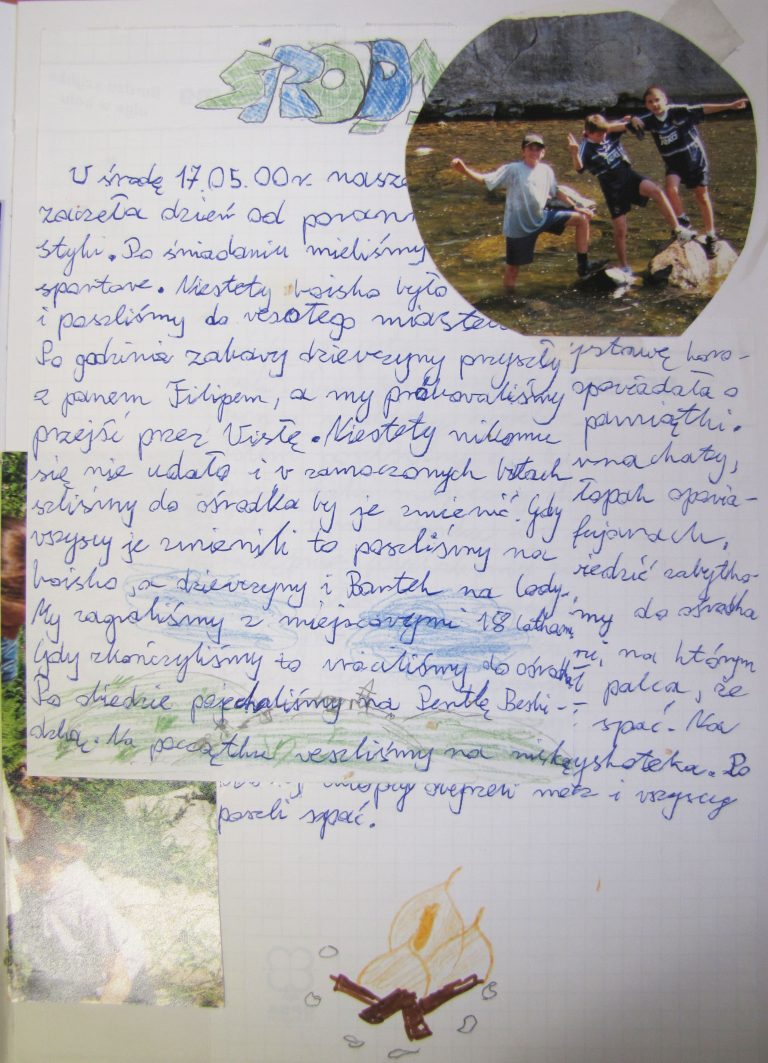 ŚRODA
W środę 17.05.00r. nasze
zaczeła dzień od porann
styki. Po śniadaniu mieliśmy
sportowe. Niestety boisko było
i poszliśmy do wesołego miastecz
Po godzinia zabawy dzieverzyny przyszły
z panem Filipem, a my próbowaliśmy
przejść przez Wisłę. Niestety nikomu
się nie udało i w zamoczonych butach
szliśmy do ośrodka by je zmienić. Gdy
wszyscy je zmienili to poszliśmy na
boisko, a dziewczyny i Bartek na lody.
My zagraliśmy z miejscowymi 18 latkami,
Gdy skończyliśmy to wróciliśmy do ośrodka
Po obiedzie pojechaliśmy na Pentlę Beski-
dzką. Na początku weszliśmy na niską
jstawę koro-
opowiadała o
pamiątki.
wna chaty,
łapah opowia-
fujarach,
redzić zabytko-
my do ośrodka
na którym
palca, że
spać. Na
yskoteka. Po
mecz i wszyscy
poszli spać.